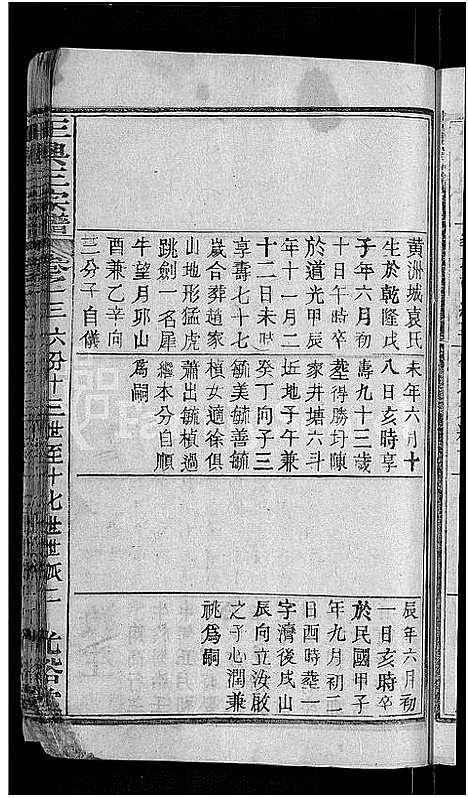 黄洲城袁氏
生於乾隆戊
子年六月初
十日午時卒
於道光甲辰
年十一月二
十二日未時
享壽七十七
歲合葬趙家
山地形猛虎
跳劍一名犀
牛望月邜山
酉兼乙辛向
三分子自儀
未年六月十
八日亥時享
壽九十三歲
塟得勝圴陳
家井塘六斗
坵地子午兼
癸丁向子三
毓美毓善毓
楨女適徐俱
蕭出毓楨過
繼本分自順
爲嗣
辰年六月初
一日亥時卒
於民國甲子
年九月初二
日酉時塟一
字濟後戌山
辰向立汝啟
之子心潤兼
祧爲嗣
王興王宗譜
卷之二三六份十三世至十七世世系二
光裕堂